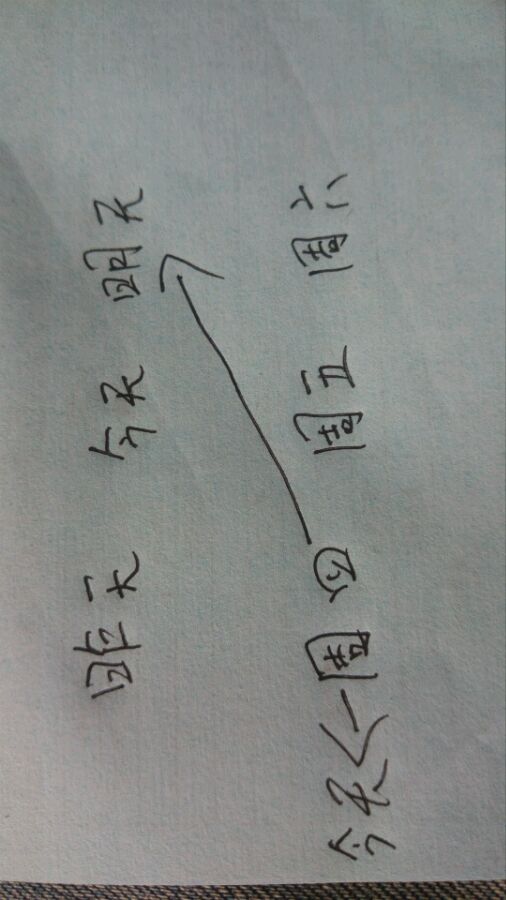 昨天 今天 明天
今天 周四 周五 周六